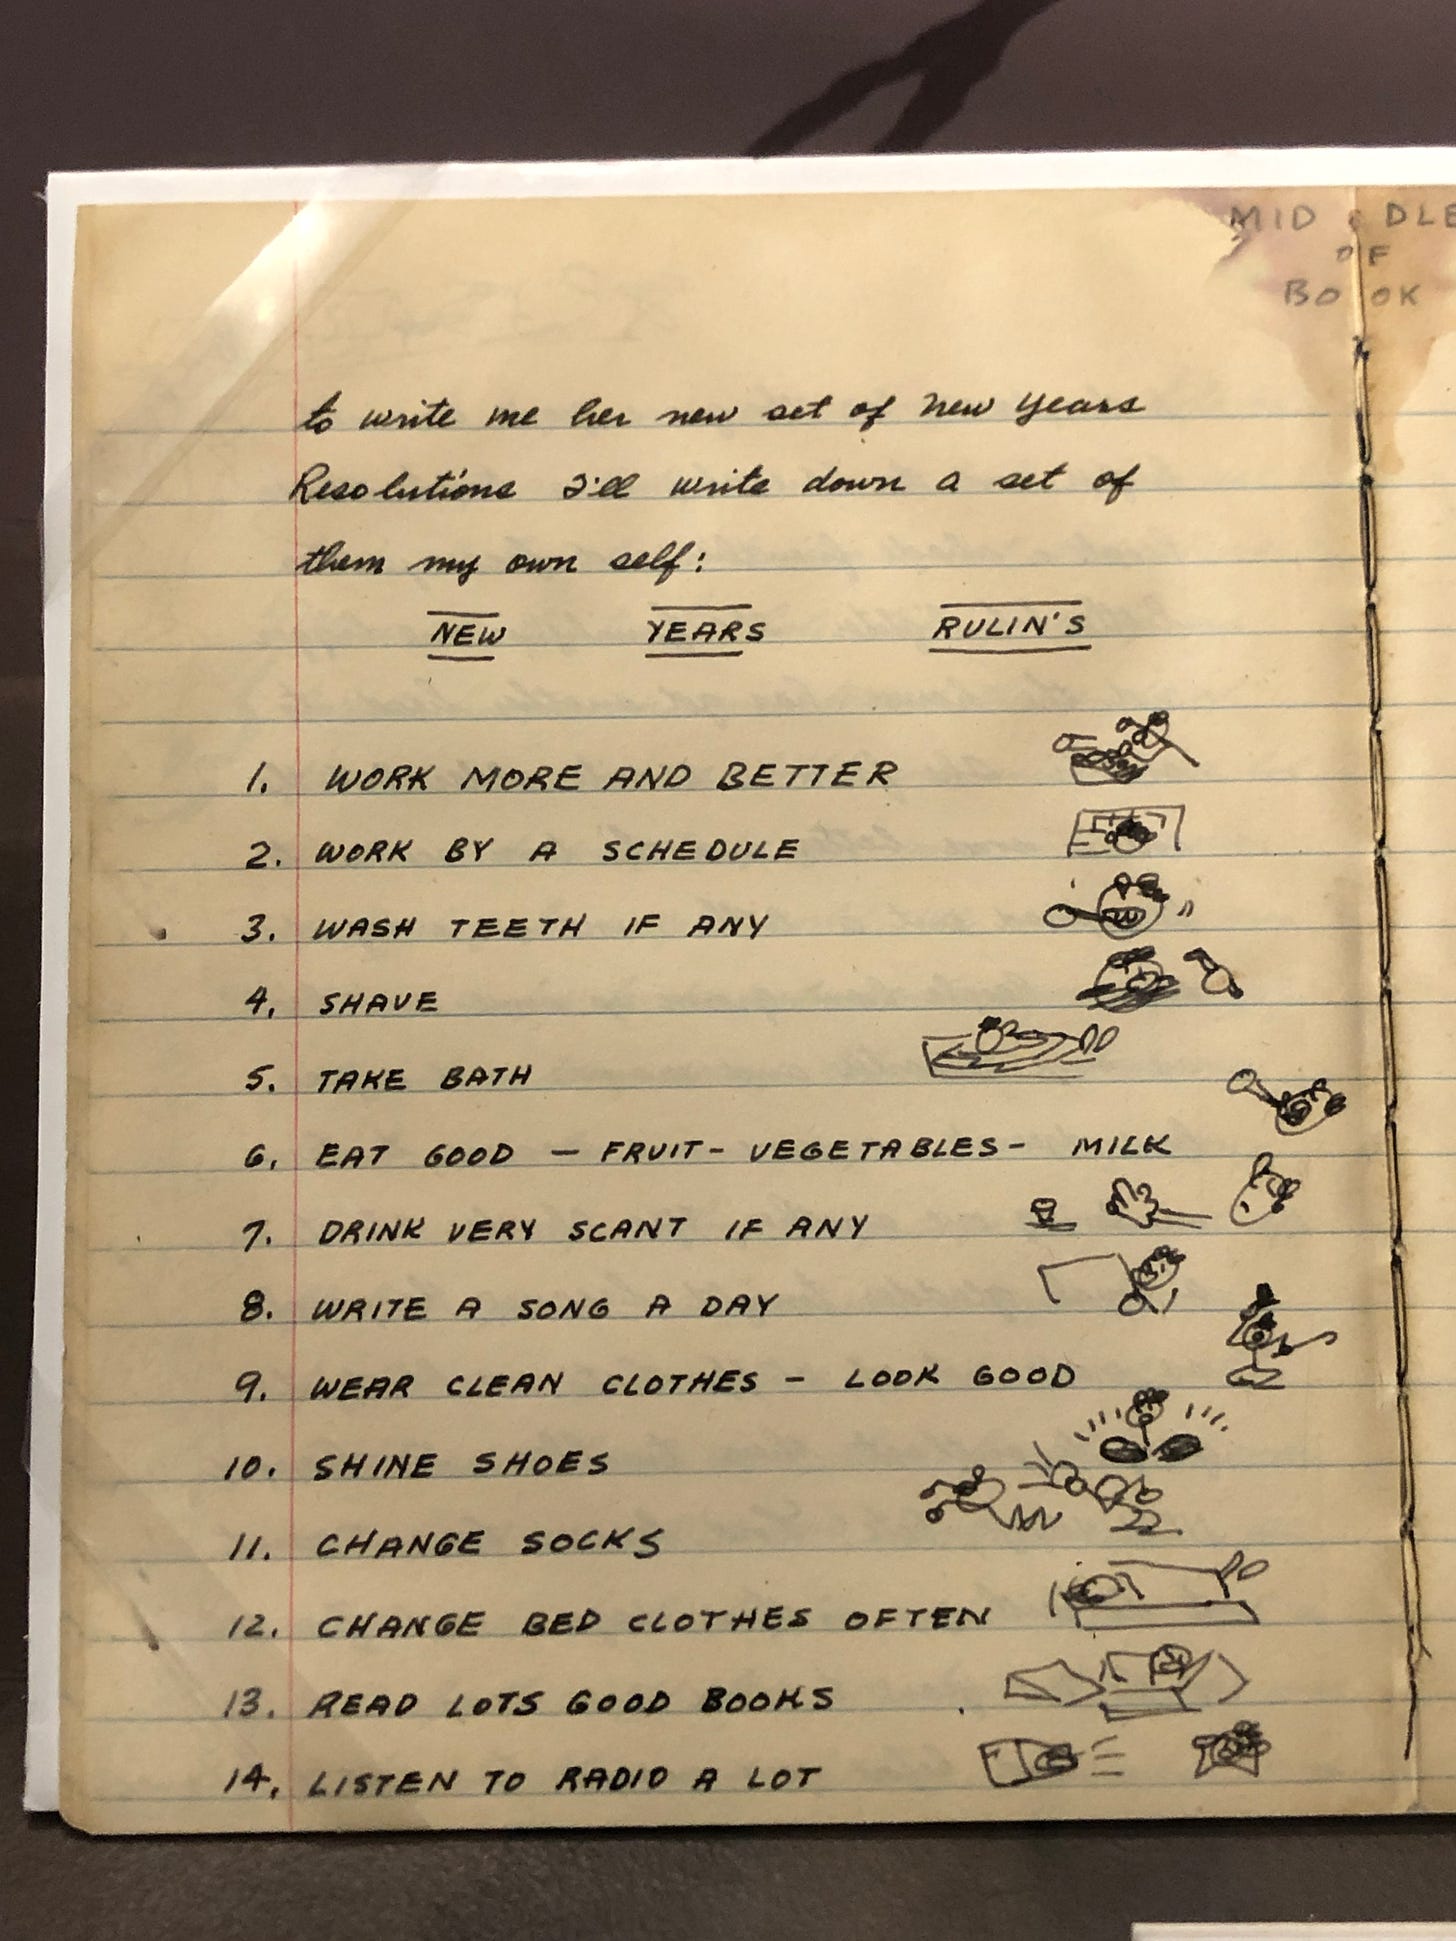 MIDDLE
OF
BOOK
to write me her new set of new years
Resolutions I'll write down a set of
them my own self:
NEW YEARS RULIN'S
1. WORK MORE AND BETTER
2. WORK BY A SCHEDULE
3. WASH TEETH IF ANY
4. SHAVE
5. TAKE BATH
6. EAT GOOD — FRUIT - VEGETABLES - MILK
7. DRINK VERY SCANT IF ANY
8. WRITE A SONG A DAY
9. WEAR CLEAN CLOTHES - LOOK GOOD
10. SHINE SHOES
11. CHANGE SOCKS
12. CHANGE BED CLOTHES OFTEN
13. READ LOTS GOOD BOOKS
14. LISTEN TO RADIO A LOT